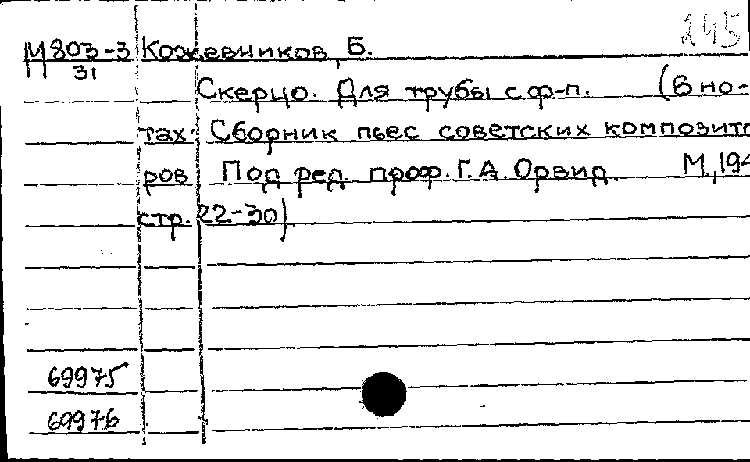 245
М 803-3 Кожевников, Б.
31
Скерцо. Для трубы с ф-п. (В но-
тах: Сборник пьес советских композито
ров. Под ред. проф. Г.А. Орвид. М., 194
стр. 22-30).
69975
69976